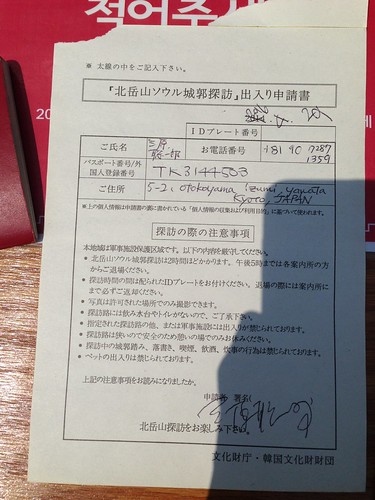 적어주세
※ 太線の中をご記入下さい。
『北岳山ソウル城郭探訪』出入り申請書
IDプレート番号
ご氏名
お電話番号
+81 90
1359
パスポート番号/外国人登録番号
TK3144503
ご住所
5-2, otokoyama Izumi, yawata
Kyoto, JAPAN
※上の個人情報は申請書の裏に書かれている「個人情報の収集および利用目的」に基づいて使われます。
探訪の際の注意事項
本地域は軍事施設保護区域です。以下の内容を厳守してください。
• 北岳山ソウル城郭探訪は2時間ほどかかります。午後5時までは各案内所の方
からご退場ください。
• 探訪時間の間は配られたIDプレートをお付けください。退場の際には案内所に
まで必ずご返却ください。
• 写真は許可された場所でのみ撮影できます。
• 探訪路には飲み水台やトイレがないので、ご了承下さい。
• 指定された探訪路の他、または軍事施設には出入りが禁じられております。
• 探訪路は狭いので安全のため憩いの場でのみお休みください。
• 探訪中の城郭踏み、落書き、喫煙、飲酒、炊事の行為は禁じられております。
• ペットの出入りは禁じられております。
上記の注意事項をお読みになりましたか。
申請者 署名(
北岳山探訪をお楽しみ下さい。
文化財庁・韓国文化財財団